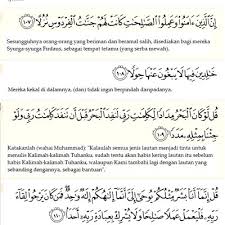 إِنَّ الَّذِينَ ءَامَنُوا وَعَمِلُوا الصَّالِحَاتِ كَانَتْ لَهُمْ جَنَّاتُ الْفِرْدَوْسِ نُزُلًا ١٠٧
Sesungguhnya orang-orang yang beriman dan beramal salih, disediakan bagi mereka
Syurga-syurga Firdaus, sebagai tempat tetamu (yang serba mewah).
خَالِدِينَ فِيهَا لَا يَبْغُونَ عَنْهَا حِوَلًا ١٠٨
Mereka kekal di dalamnya, (dan) tidak ingin berpindah daripadanya.
قُل لَّوْ كَانَ الْبَحْرُ مِدَادًا لِّكَلِمَاتِ رَبِّي لَنَفِدَ الْبَحْرُ قَبْلَ أَن تَنفَدَ كَلِمَاتُ رَبِّي وَلَوْ
جِئْنَا بِمِثْلِهِ مَدَدًا ١٠٩
Katakanlah (wahai Muhammad): "Kalaulah semua jenis lautan menjadi tinta untuk
menulis Kalimah-kalimah Tuhanku, sudah tentu akan habis kering lautan itu sebelum
habis Kalimah-kalimah Tuhanku, walaupun Kami tambahi lagi dengan lautan yang
sebanding dengannya, sebagai bantuan".
قُلْ إِنَّمَا أَنَا بَشَرٌ مِّثْلُكُمْ يُوحَىٰ إِلَيَّ أَنَّمَا إِلَٰهُكُمْ إِلَٰهٌ وَاحِدٌ فَمَن كَانَ يَرْجُوا لِقَاءَ
رَبِّهِ فَلْيَعْمَلْ عَمَلًا صَالِحًا وَلَا يُشْرِكْ بِعِبَادَةِ رَبِّهِ أَحَدًا ١١٠